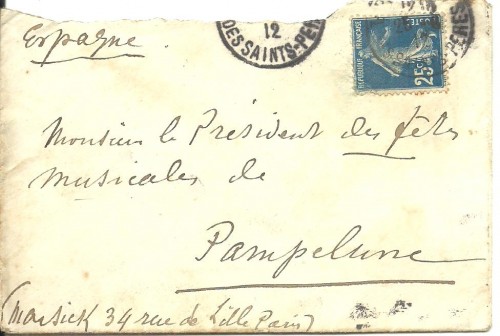 Espagne
12
DES SAINTS-PÈRES
REPUBLIQUE FRANÇAISE
25c
POSTES
Monsieur le Président des fêtes
musicales de
Pampelune
(Marsick 34 rue de Lille Paris)